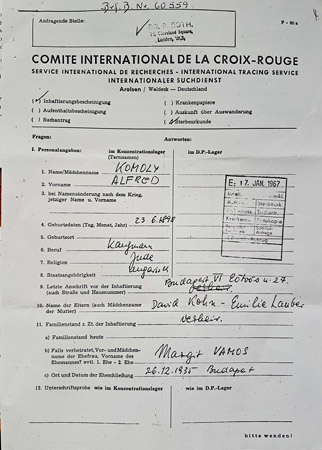 Bef. B. Nr. 60 559
Anfragende Stelle:
F - 60 a
DR. R. ROTH,
Cleveland Square,
London, W.2.
COMITE INTERNATIONAL DE LA CROIX-ROUGE
SERVICE INTERNATIONAL DE RECHERCHES - INTERNATIONAL TRACING SERVICE
INTERNATIONALER SUCHDIENST
Arolsen / Waldeck — Deutschland
Inhaftierungsbescheinigung
Krankenpapiere
Aufenthaltsbescheinigung
Auskunft über Auswanderung
Suchantrag
Sterbeurkunde
Fragen:
Antworten:
I. Personalangaben:
im Konzentrationslager
(Tarnnamen)
im D.P.-Lager
1. Name/Mädchenname
KOMOLY
2. Vorname
ALFRED
3. bei Namensänderung nach dem Krieg,
jetziger Name u. Vorname
E: 17. JAN. 1967
4. Geburtsdaten (Tag, Monat, Jahr)
23.6.1898
5. Geburtsort
6. Beruf
Kaufmann
7. Religion
Jude
8. Staatsangehörigkeit
ungarisch
9. Letzte Anschrift vor der Inhaftierung
(auch Straße und Hausnummer)
Budapest VI Eötvös u. 27.
10. Name der Eltern (auch Mädchenname
der Mutter)
David Kohn - Emilie Lauber
11. Familienstand z. Zt. der Inhaftierung
verheir.
a) Familienstand heute
b) Falls verheiratet, Vor- und Mädchen-
name der Ehefrau, Vorname des
Ehemannes evtl. 1. Ehe - 2. Ehe
Margit VAMOS
c) Ort und Datum der Eheschließung
26.12.1935 Budapest
12. Unterschriftsprobe wie im Konzentrationslager
wie im D.P.-Lager
bitte wenden!